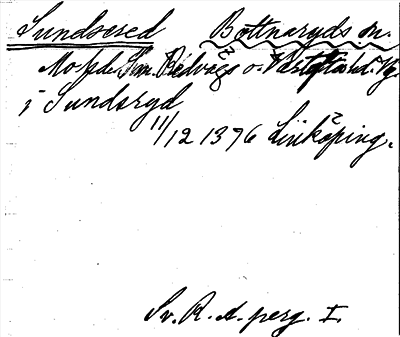 Sundsered Bottnaryds sn.
Mo hd. Sm. Redvägs o. Västg.
i Sundsryd
11/12 1376 Linköping.
Sv. R. A. perg. I.